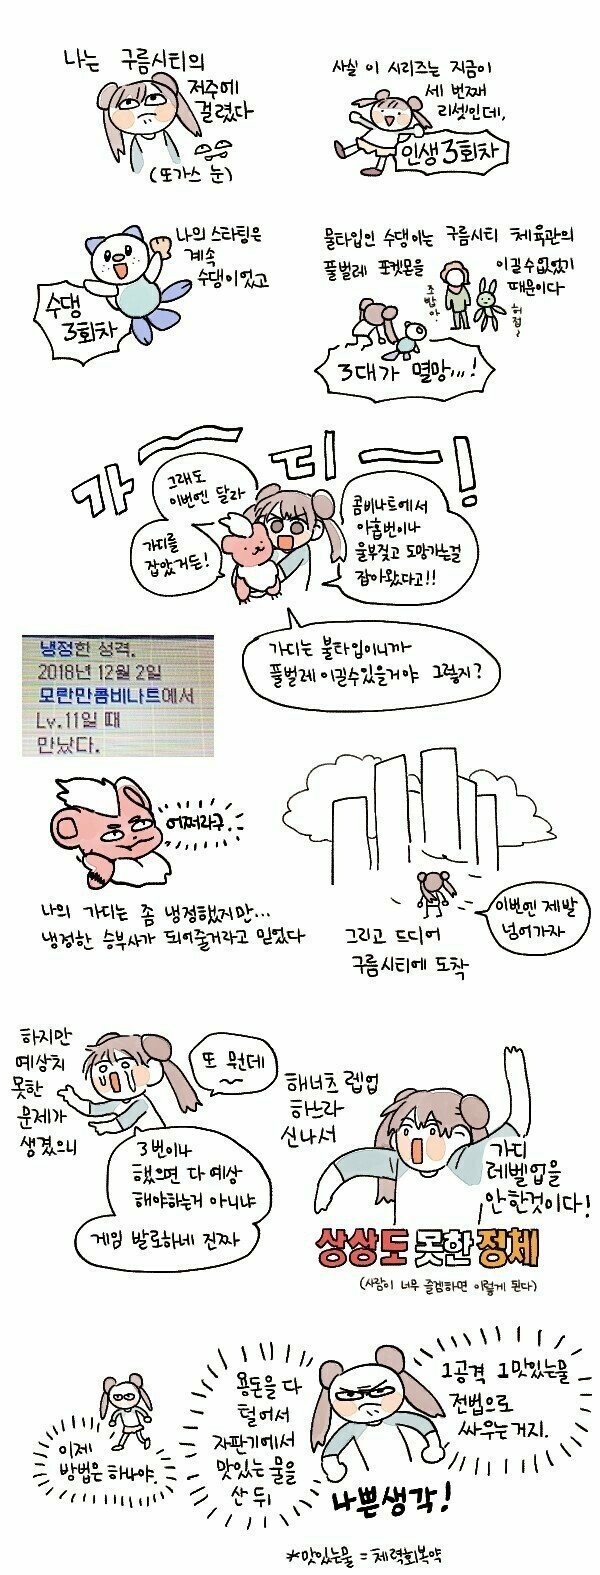 나는 구름시티의
저주에
걸렸다
(또가스 눈)
사실 이 시리즈는 지금이
세 번째
리셋인데,
인생 3회차
나의 스타팅은
계속
수댕이었고
수댕
3회차
물타입인 수댕이는 구름시티 체육관의
풀벌레 포켓몬을 이길 수 없었기
때문이다
조밥아.
허접~
3대가 멸망,,,!
가디ㅡ!
그래도
이번엔 달라
가디를
잡았거든!
콤비나트에서
아홉번이나
울부짖고 도망가는걸
잡아왔다고!!
가디는 불타입이니까
풀벌레 이길수있을거야 그렇지?
냉정한 성격.
2018년 12월 2일
모란만콤비나트에서
Lv.11일 때
만났다.
어쩌라구
나의 가디는 좀 냉정했지만...
냉정한 승부사가 되어줄거라고 믿었다
이번엔 제발
넘어가자
그리고 드디어
구름시티에 도착
하지만
예상치
못한
문제가
생겼으니
또 뭔데
3번이나
했으면 다 예상
해야하는거 아니냐
게임 발로하네 진짜
해너츠 렙업
하느라
신나서
가디
레벨업을
안한것이다!
상상도 못한 정체
(사람이 너무 즐겜하면 이렇게 된다)
이제
방법은 하나야.
용돈을 다
털어서
자판기에서
맛있는 물을
산 뒤
1공격 1맛있는물
전법으로
싸우는거지.
나쁜생각!
*맛있는물 = 체력회복약